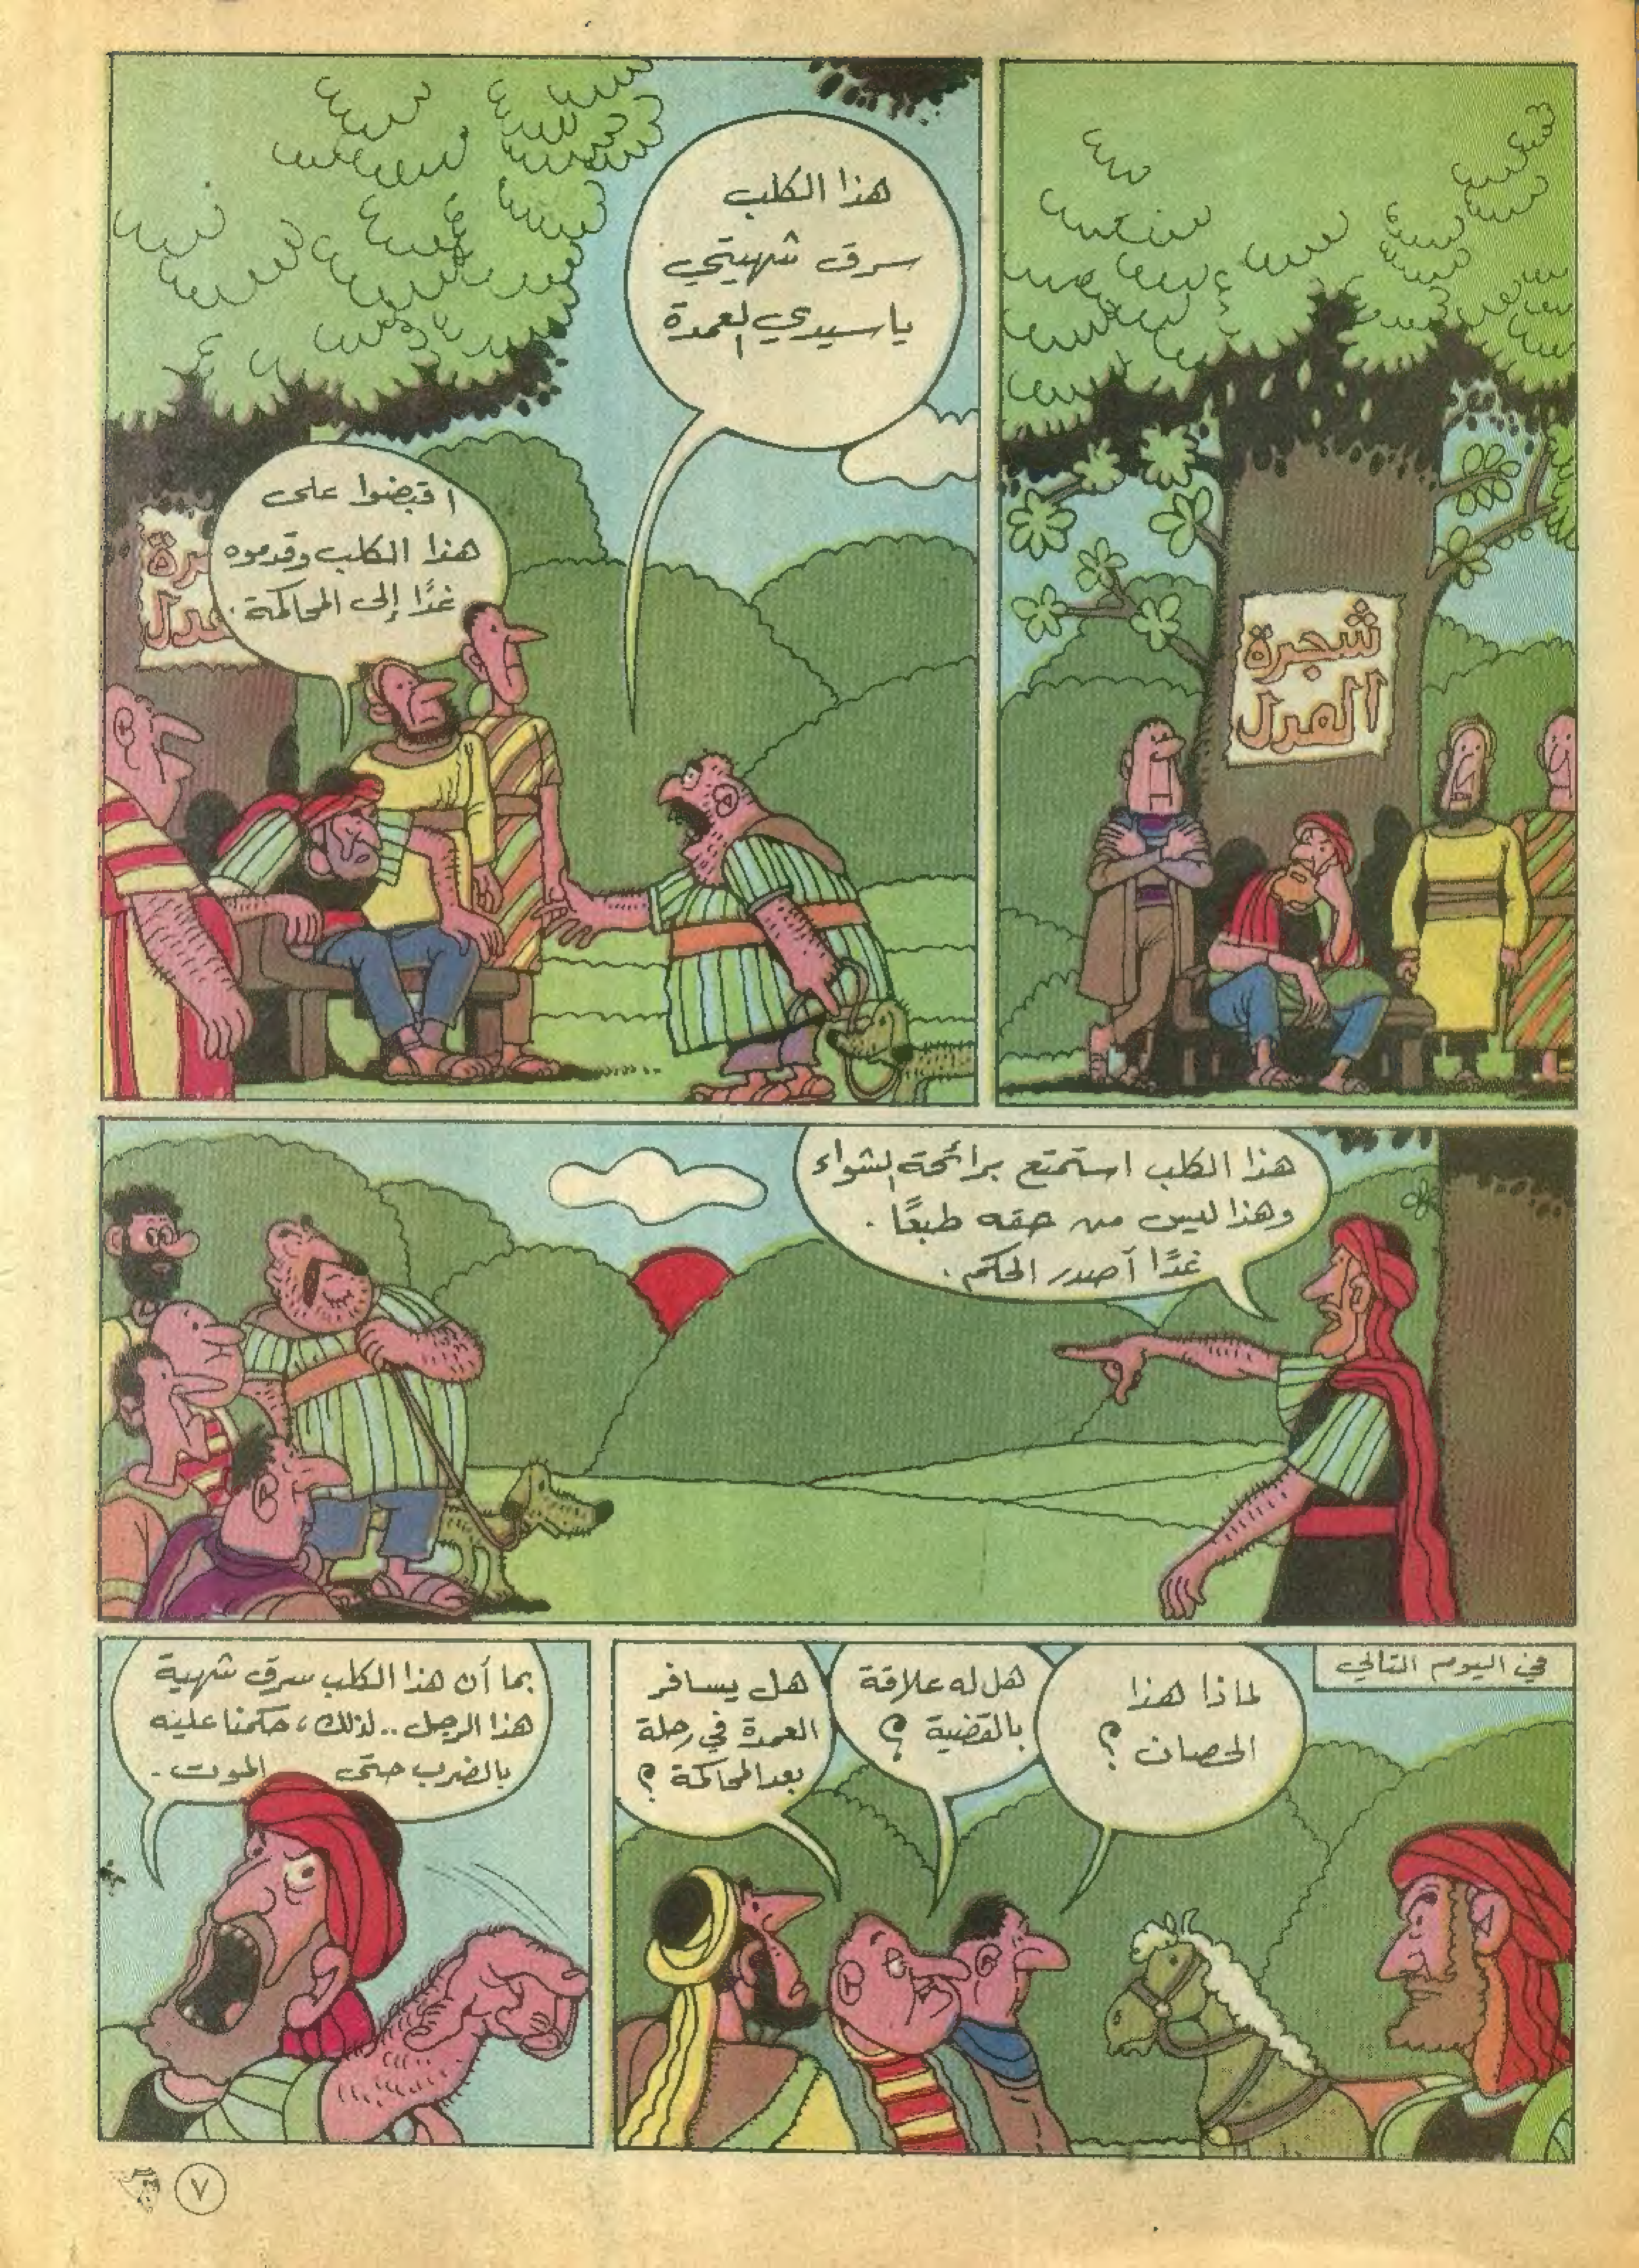 شجرة
العدل
هذا الكلب
سرق شهيتي
يا سيدي العمدة
اقبضوا على
هذا الكلب وقدموه
غدًا إلى المحاكمة.
رة
عدل
هذا الكلب استمتع برائحة الشواء
وهذا ليس من حقه طبعًا.
غدًا أصدر الحكم.
في اليوم التالي
لماذا هذا
الحصان؟
هل له علاقة
بالقضية؟
هل يسافر
العمدة في رحلة
بعد المحاكمة؟
بما أن هذا الكلب سرق شهية
هذا الرجل.. لذلك، حكمنا عليه
بالضرب حتى الموت.
٧